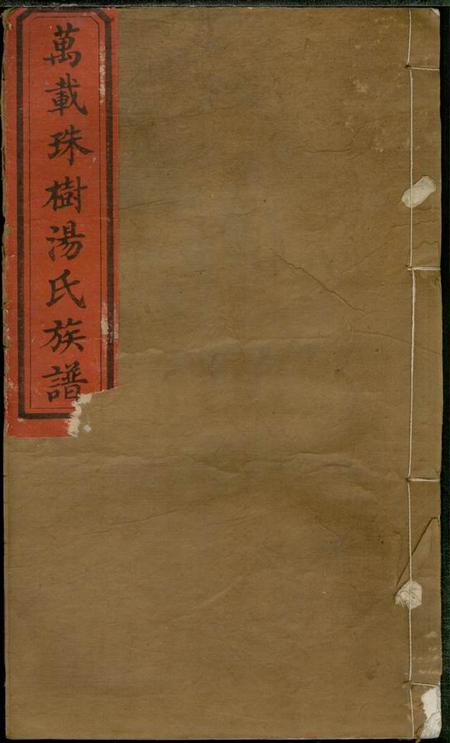 萬載珠樹湯氏族譜